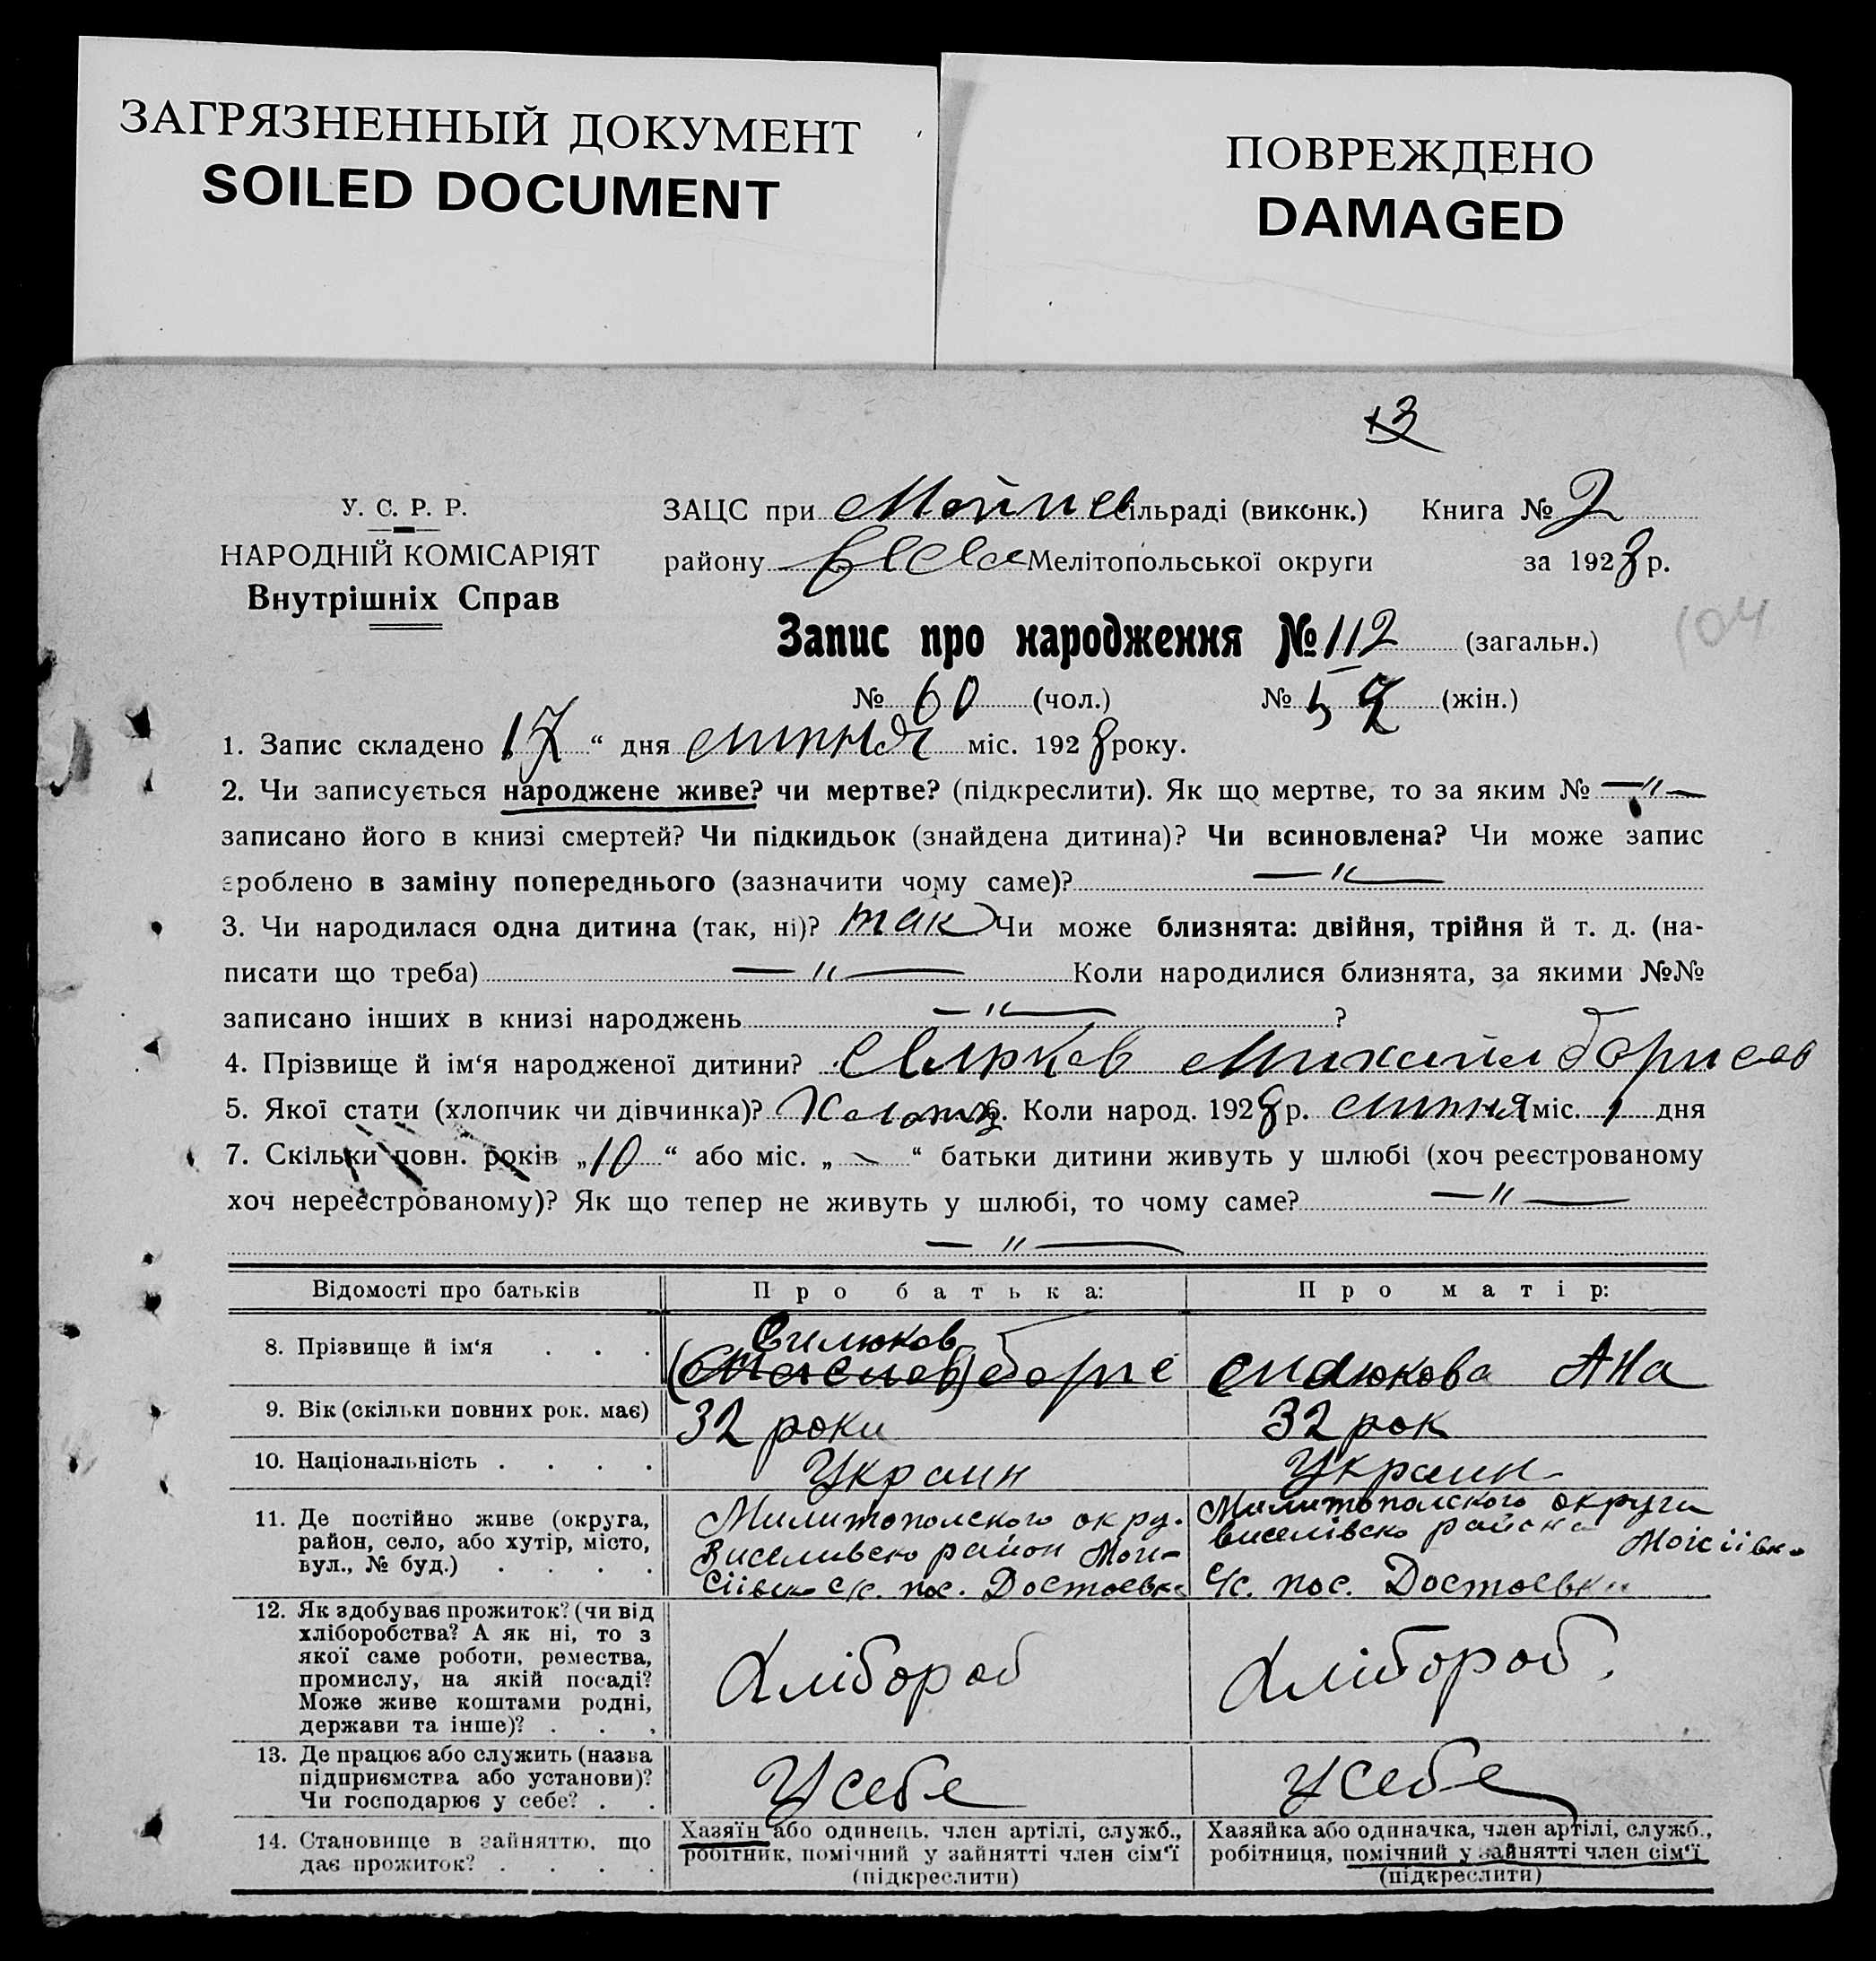 ЗАГРЯЗНЕННЫЙ ДОКУМЕНТ
SOILED DOCUMENT
ПОВРЕЖДЕНО
DAMAGED
13
У. С. Р. Р.
НАРОДНІЙ КОМІСАРІЯТ
Внутрішніх Справ
ЗАЦС при сільраді (виконк.) Книга № 2
району Мелітопольської округи за 1928 р.
Запис про народження № 112 (загальн.)
104
№ 60 (чол.) № 52 (жін.)
1. Запис складено 17 “ дня липня міс. 1928 року.
2. Чи записується народжене живе? чи мертве? (підкреслити). Як що мертве, то за яким № —"—
записано його в книзі смертей? Чи підкидьок (знайдена дитина)? Чи всиновлена? Чи може запис
зроблено в заміну попереднього (зазначити чому саме)? —"—
3. Чи народилася одна дитина (так, ні)? так Чи може близнята: двійня, трійня й т. д. (на-
писати що треба) —"— Коли народилися близнята, за якими №№
записано інших в книзі народжень —"— ?
4. Прізвище й ім‘я народженої дитини? Михаил Борисов
5. Якої стати (хлопчик чи дівчинка)? 6. Коли народ. 1928 р. липня міс. 1 дня
7. Скільки повн. років „10“ або міс. „—“ батьки дитини живуть у шлюбі (хоч реєстрованому
хоч нереєстрованому)? Як що тепер не живуть у шлюбі, то чому саме? —"—
—"—
Відомості про батьків Про батька: Про матір:
8. Прізвище й ім‘я . . . Борис Ана
9. Вік (скільки повних рок. має) 32 роки 32 рок
10. Національність . . . . Украин Украин
11. Де постійно живе (округа, район, село, або хутір, місто, вул., № буд.) . . . .
Милитополского окру.
район Мои-
сіівско с/с. пос. Достоевка
Милитополского округи
района Моісіівко
с/с. пос. Достоевки
12. Як здобуває прожиток? (чи від
хліборобства? А як ні, то з
якої саме роботи, ремества,
промислу, на якій посаді?
Може живе коштами родні,
держави та інше)? . . .
Хлібороб Хлібороб.
13. Де працює або служить (назва
підприємства або установи)?
Чи господарює у себе? . .
У себе У себе
14. Становище в зайняттю, що
дає прожиток? . . . .
Хазяїн або одинець, член артілі, служб.,
робітник, помічний у зайнятті член сім‘ї
(підкреслити)
Хазяйка або одиначка, член артілі, служб.,
робітниця, помічний у зайнятті член сім‘ї
(підкреслити)